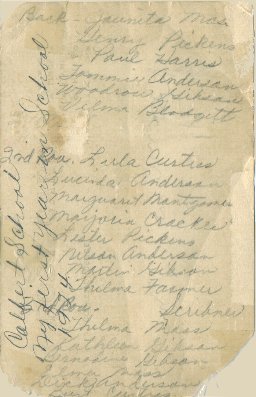 Back - Jaunita Mas.
Henry Pickens
Paul Harris
Tommie Anderson
Woodrow Gibson
Velma Blodgett
2nd Row. Larla Curtus
Lucinda Anderson
Marguaret Mantgomer
Marjoria Crackes
Lester Pickens
Nelson Anderson
Martin Gibson
Thelma Farmer
Row. Scribner
Thelma Mass
Kathleen Gibson
Gibson
Elmer Mass
Dick Anderson
Calvert School
My First Year in School
1924